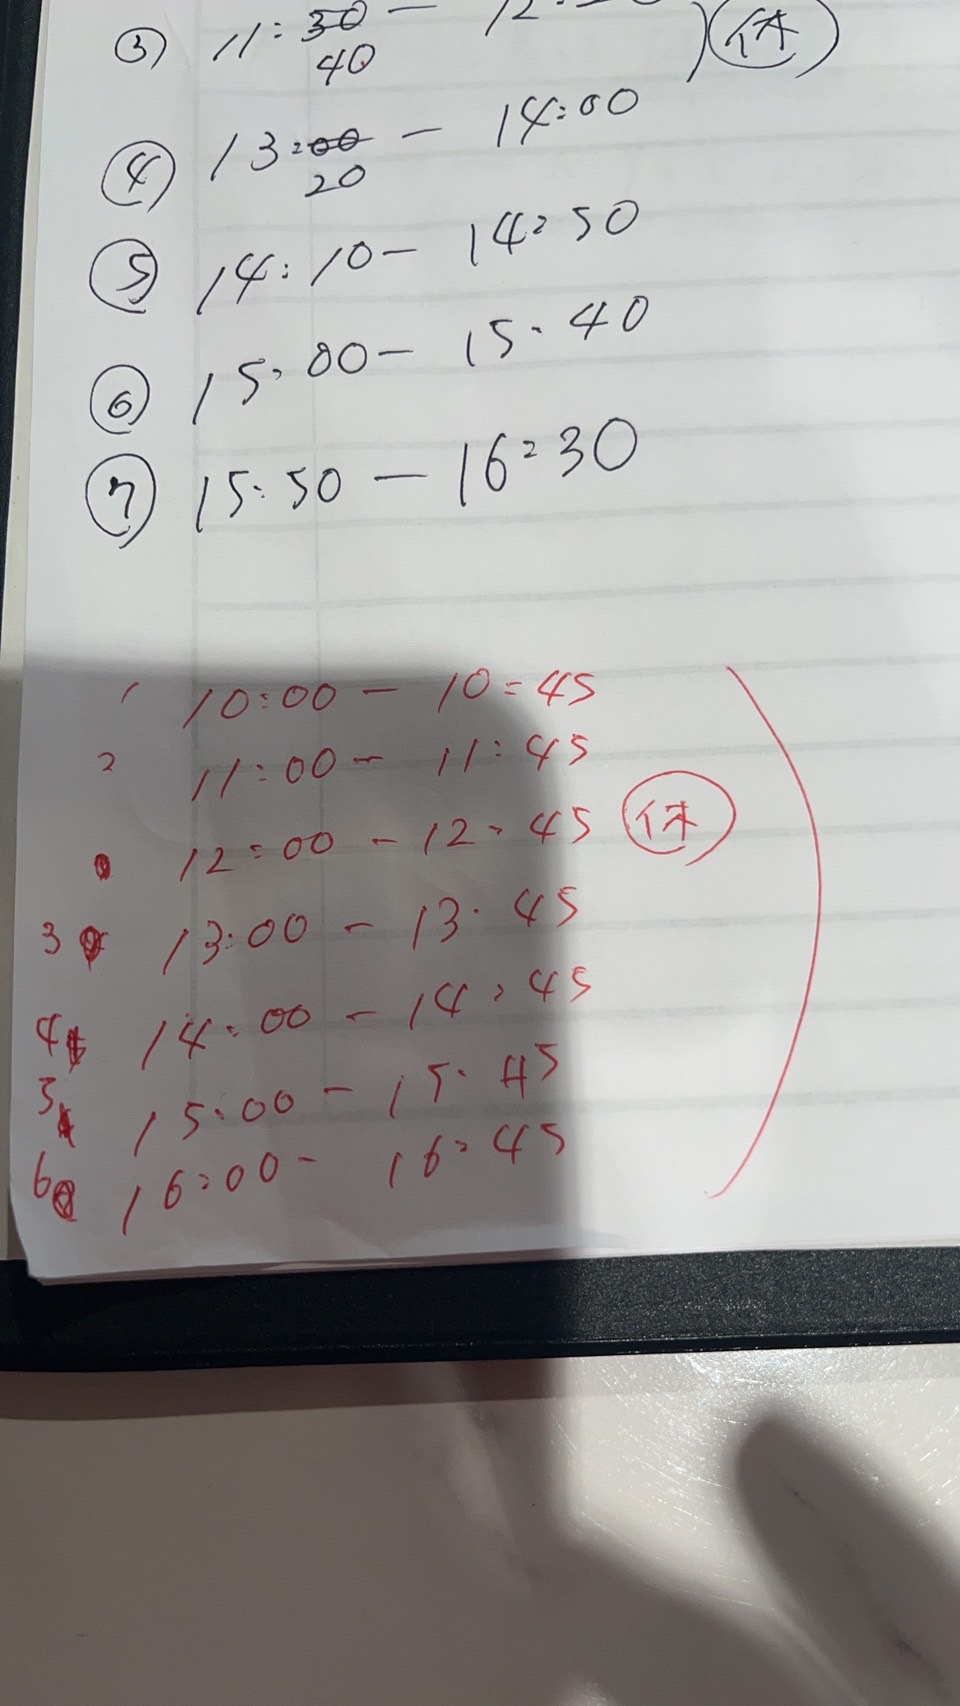 ③ 11:30 - 12: 休
40
④ 13:00 - 14:00
20
⑤ 14:10 - 14:50
⑥ 15:00 - 15:40
⑦ 15:50 - 16:30
1 10:00 - 10:45
2 11:00 - 11:45
12:00 - 12:45 休
3 13:00 - 13:45
4 14:00 - 14:45
5 15:00 - 15:45
6 16:00 - 16:45